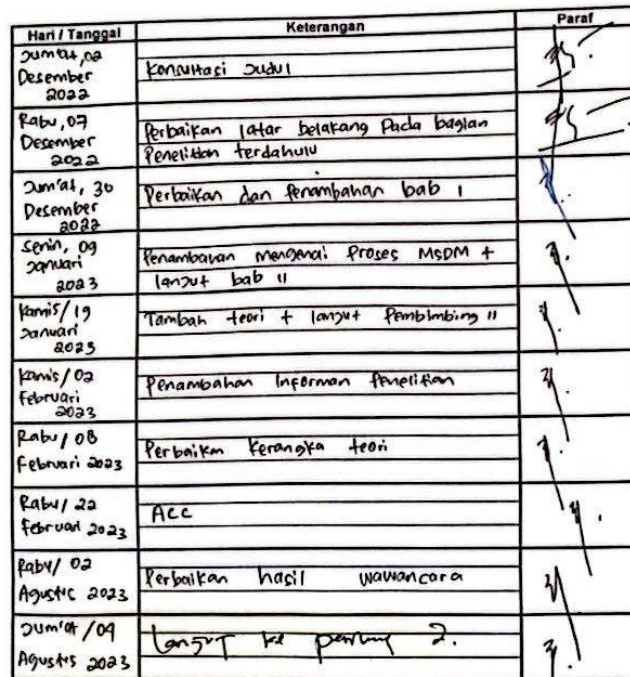 Hari / Tanggal Keterangan Paraf
Jum'at, 02
Desember
2022
Konsultasi Judul
Rabu, 07
Desember
2022
Perbaikan latar belakang Pada bagian
Penelitian terdahulu
Jum'at, 30
Desember
2022
Perbaikan dan Penambahan bab 1
Senin, 09
Januari
2023
Penambahan mengenai Proses MSDM +
lanjut bab II
Kamis / 19
Januari
2023
Tambah teori + lanjut Pembimbing II
Kamis / 02
Februari
2023
Penambahan Informan Penelitian
Rabu / 08
Februari 2023
Perbaikan Kerangka teori
Rabu / 22
Februari 2023
Acc
Rabu / 02
Agustus 2023
Perbaikan hasil wawancara
Jum'at / 04
Agustus 2023
Lanjut ke 2.